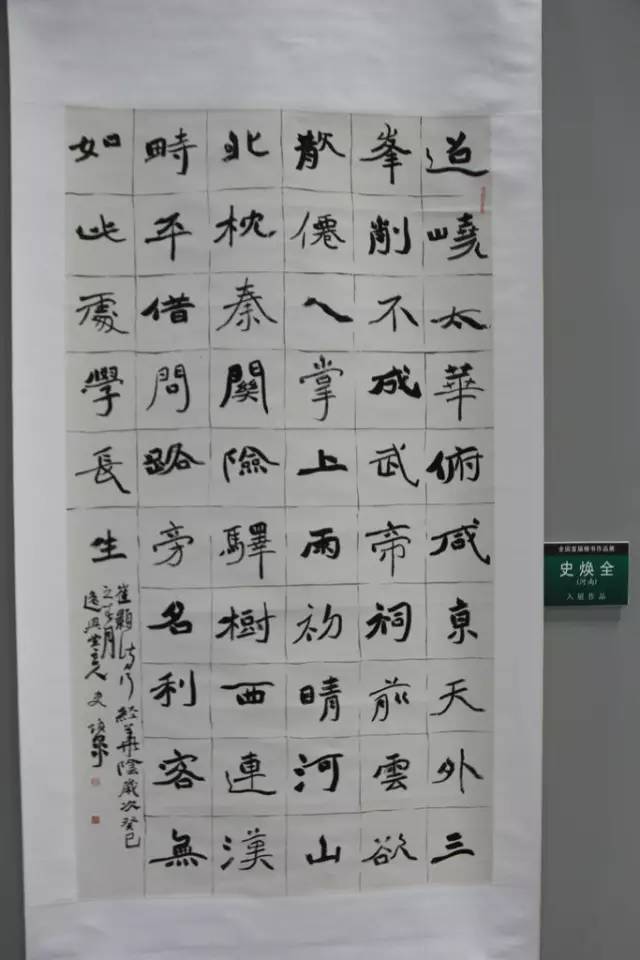 迢嶢太華俯咸京天外三
峯削不成武帝祠前雲欲
散僊人掌上雨初晴河山
北枕秦關險驛樹西連漢
畤平借問路旁名利客無
如此處學長生
崔顥詩行經華陰歲次癸巳
之月
史煥全
史焕全
(河南)
入展作品